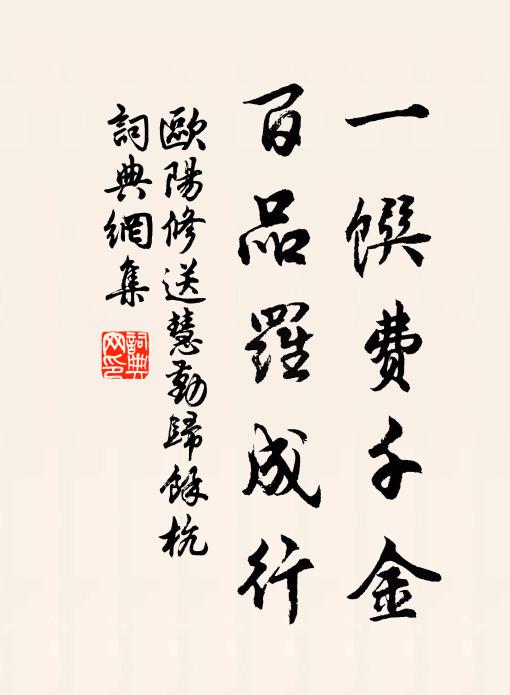 一饌費千金
百品羅成行
歐陽修送慧勤歸餘杭
詞典網集
詞典網印